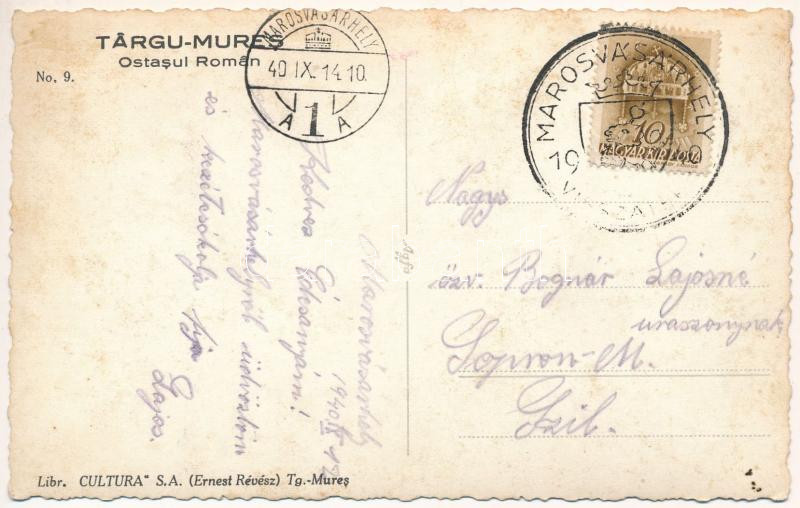 TÂRGU-MUREȘ
Ostașul Român
No. 9.
MAROSVÁSÁRHELY
40 IX. 14. 10.
A 1 A
MAROSVÁSÁRHELY
VISSZATÉRT
19 40
10
MAGYAR KIR. POSTA
Marosvásárhely
1940 IX 12
Kedves Édesanyám!
Marosvásárhelyről üdvözlöm
és kezeit csókolja fia
Lajos.
Agfa
Nagys
özv. Bognár Lajosné
uraszonynak
Sopron-M.
Libr. CULTURA" S.A. (Ernest Révész) Tg.-Mureș